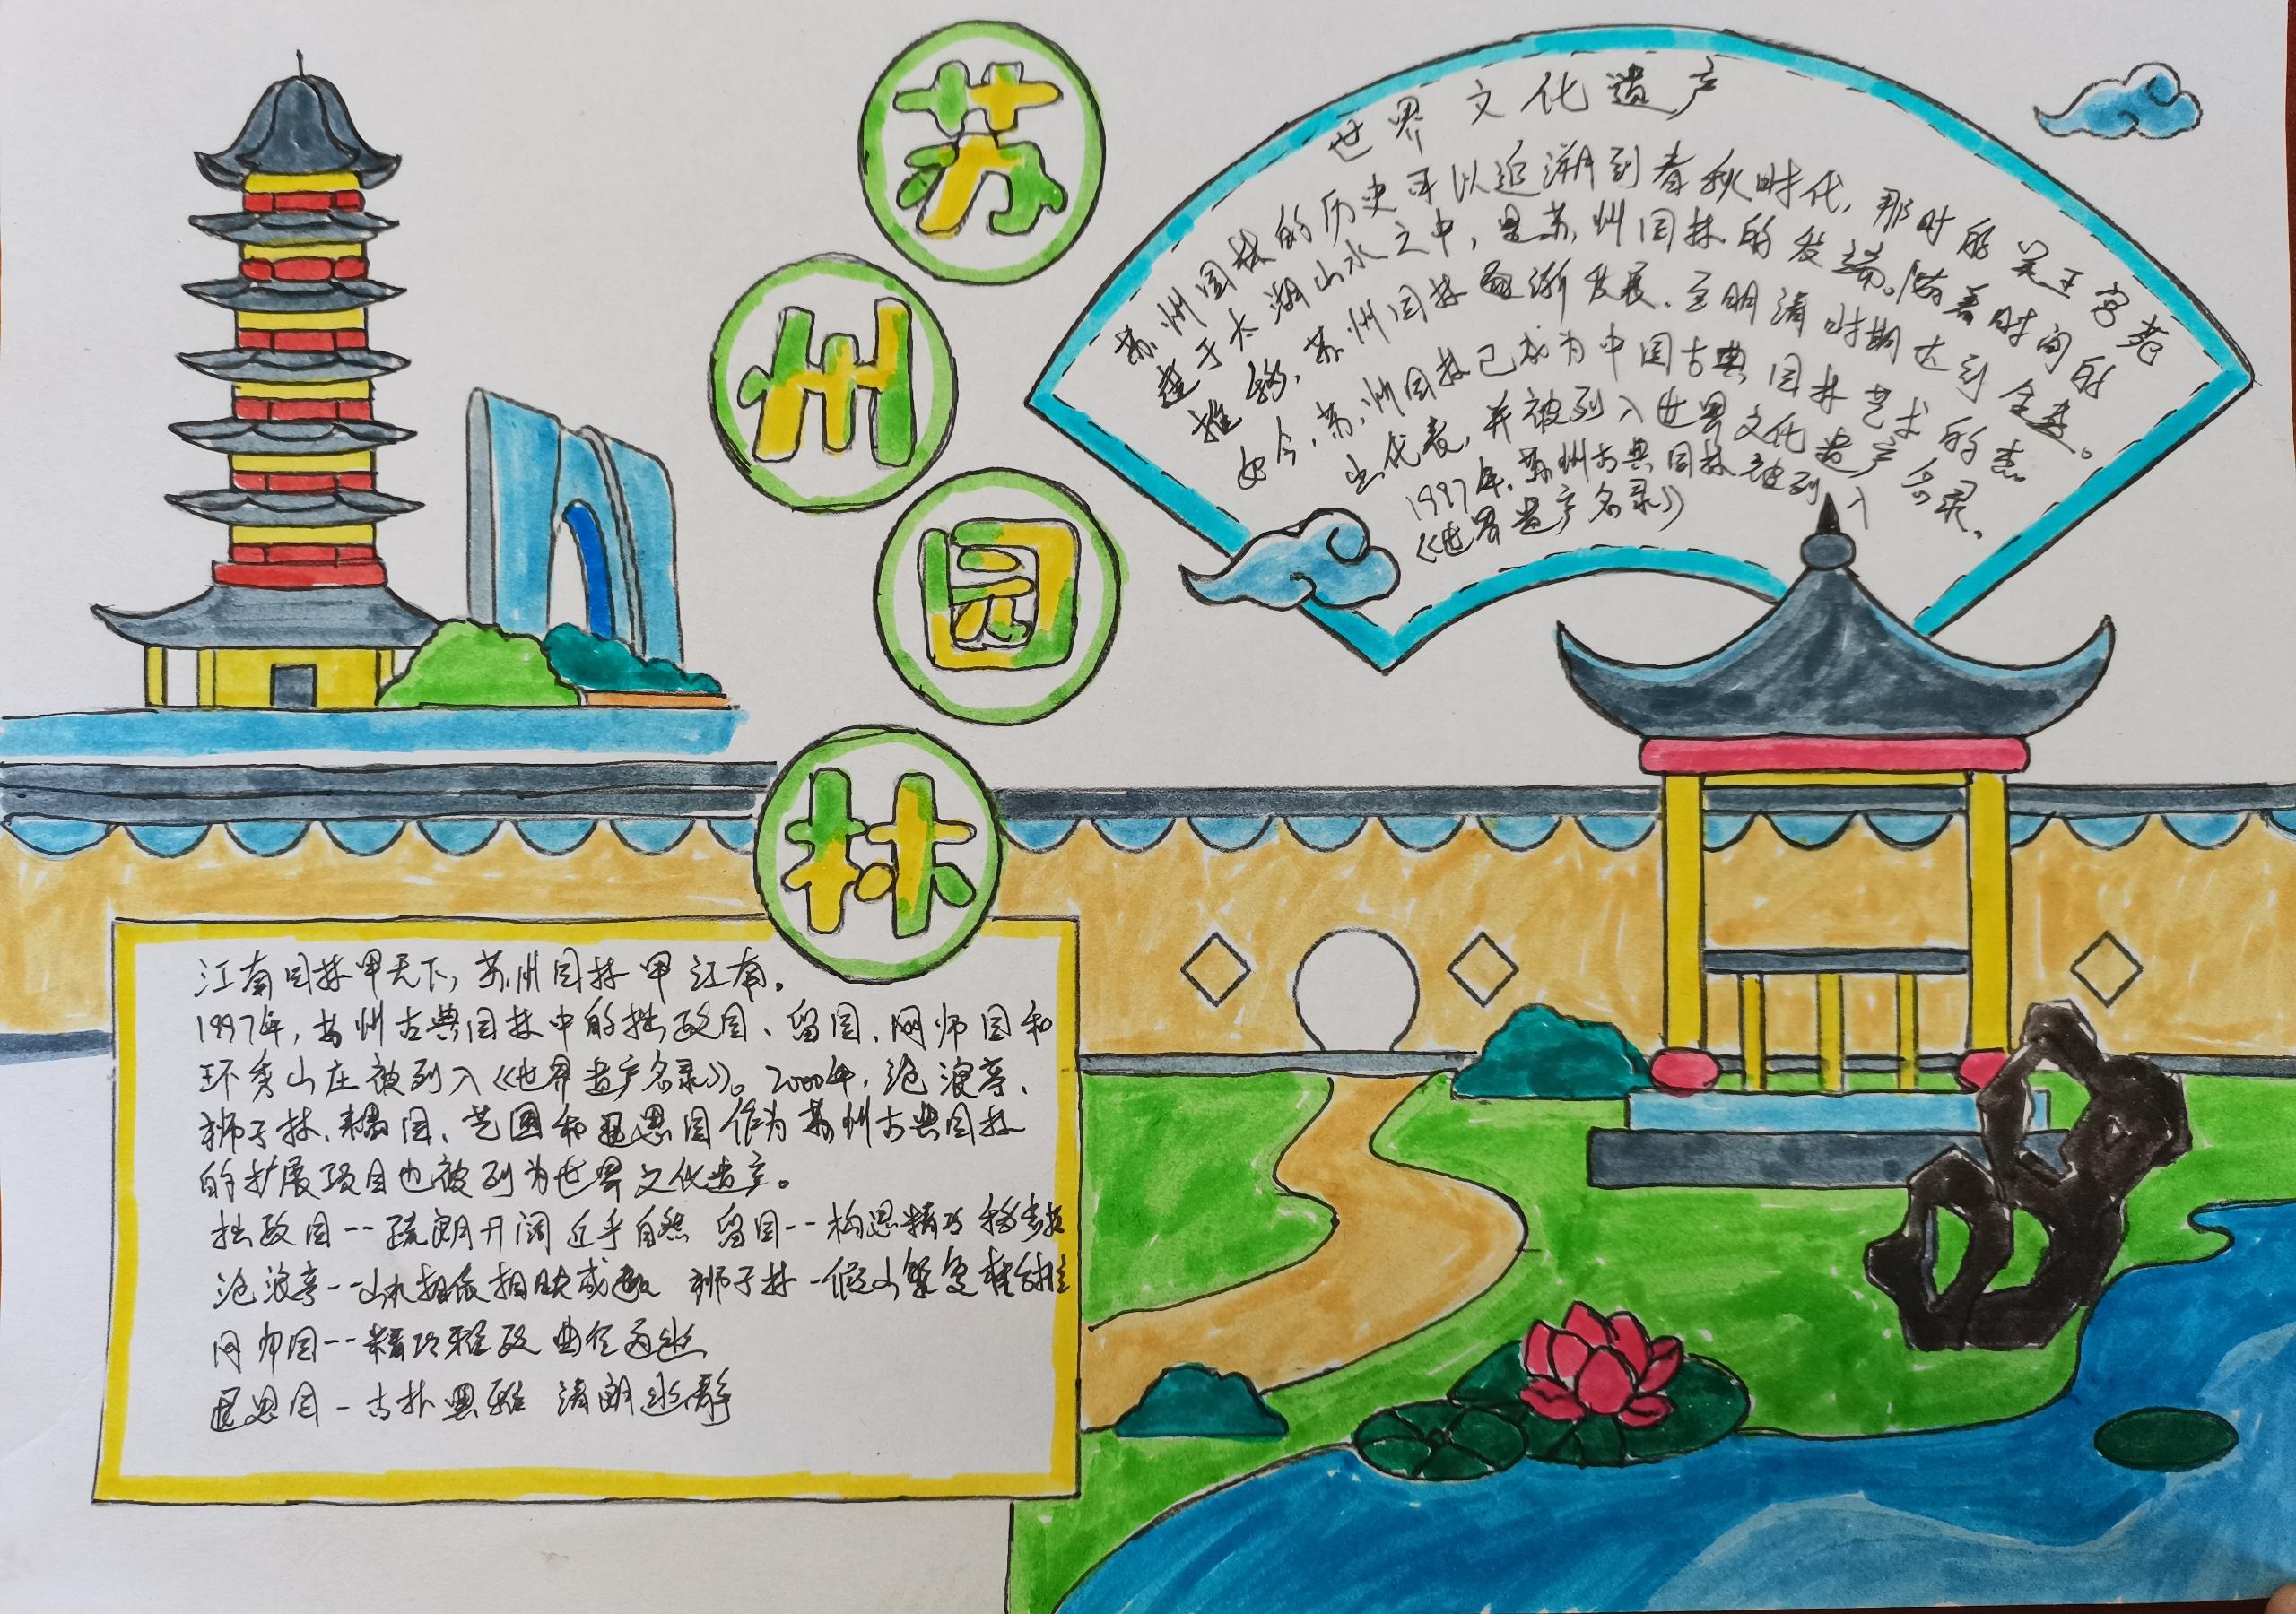 苏
州
园
林
世界文化遗产
苏州园林的历史可以追溯到春秋时代，那时的吴王宫苑
建于太湖山水之中，是苏州园林的发端。随着时间的
推移，苏州园林逐渐发展，至明清时期达到全盛。
如今，苏州园林已成为中国古典园林艺术的杰
出代表，并被列入世界文化遗产名录。
1997年，苏州古典园林被列入
《世界遗产名录》
江南园林甲天下，苏州园林甲江南。
1997年，苏州古典园林中的拙政园、留园、网师园和
环秀山庄被列入《世界遗产名录》。2000年，沧浪亭、
狮子林、耦园、艺圃和退思园作为苏州古典园林
的扩展项目也被列为世界文化遗产。
拙政园--疏朗开阔 近乎自然 留园--构思精巧 移步
沧浪亭--山水相依相映成趣 狮子林-假山繁复
网师园--精巧雅致 曲径通幽
退思园-古朴典雅 清朗幽静